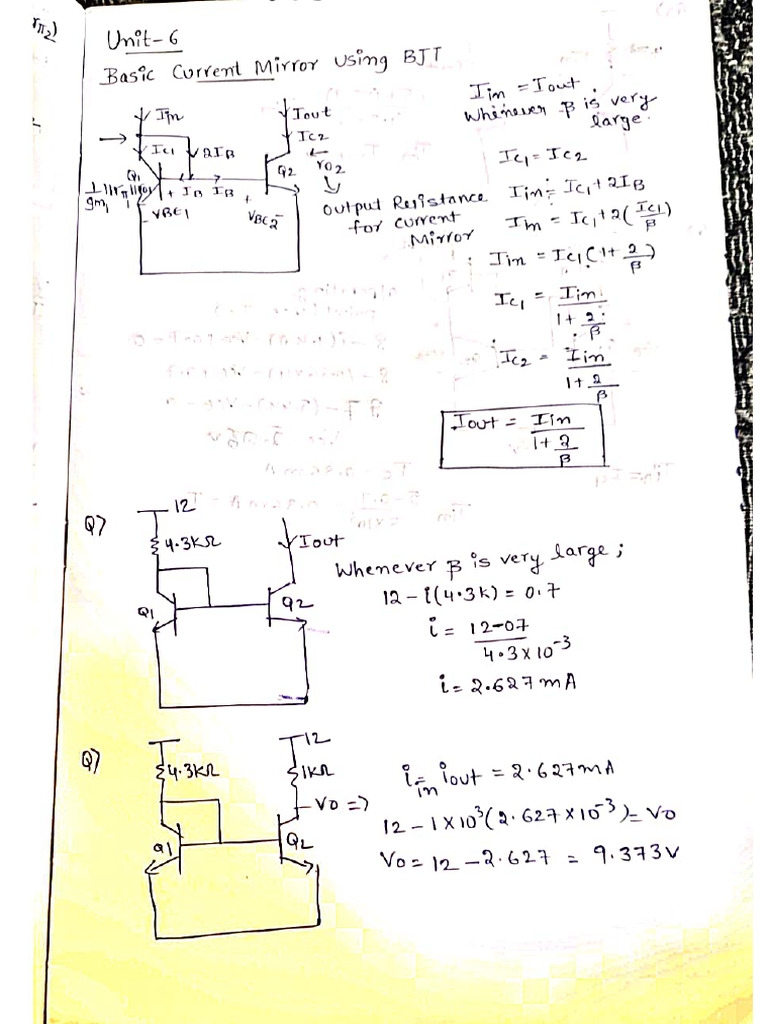 rπ2)
Unit-6
Basic Current Mirror using BJT
Iin
Iout
IC1
2IB
IC2
Q1
Q2
ro2
1/gm1 || rπ1 || ro1
+ IB IB +
- VBE1
VBE2 -
output Resistance
for current
Mirror
Iin = Iout
Whenever β is very
large.
IC1 = IC2
Iin = IC1 + 2IB
Iin = IC1 + 2(IC1/β)
Iin = IC1(1 + 2/β)
IC1 = Iin/1 + 2/β
IC2 = Iin/1 + 2/β
Iout = Iin/1 + 2/β
Q7
12
4.3KΩ
Iout
Q1
Q2
Whenever β is very large;
12 - i(4.3K) = 0.7
i = 12-07/4.3×10^-3
i = 2.627mA
Q7
12
4.3KΩ
1KΩ
VO =)
Q1
Q2
iin = iout = 2.627mA
12 - 1×10^3(2.627×10^-3) = VO
VO = 12 - 2.627 = 9.373V